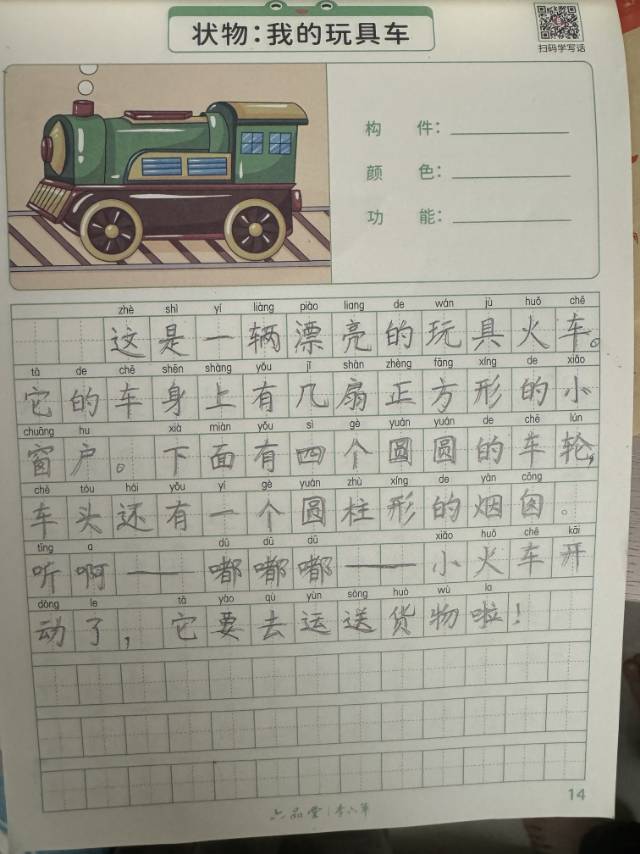 状物：我的玩具车
扫码学写话
构 件：
颜 色：
功 能：
zhè shì yí liàng piào liang de wán jù huǒ chē
这是一辆漂亮的玩具火车。
tā de chē shēn shàng yǒu jǐ shàn zhèng fāng xíng de xiǎo
它的车身上有几扇正方形的小
chuāng hu xià miàn yǒu sì gè yuán yuán de chē lún
窗户。下面有四个圆圆的车轮，
chē tóu hái yǒu yí gè yuán zhù xíng de yān cōng
车头还有一个圆柱形的烟囱。
tīng a dū dū dū xiǎo huǒ chē kāi
听啊——嘟嘟嘟——小火车开
dòng le tā yào qù yùn sòng huò wù la
动了，它要去运送货物啦！
六品堂 李六军
14